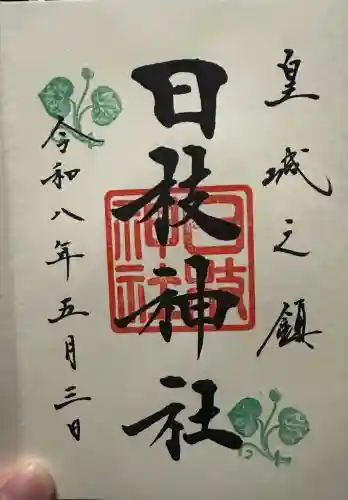 皇城之鎮
日枝神社
日枝神社
令和八年五月三日